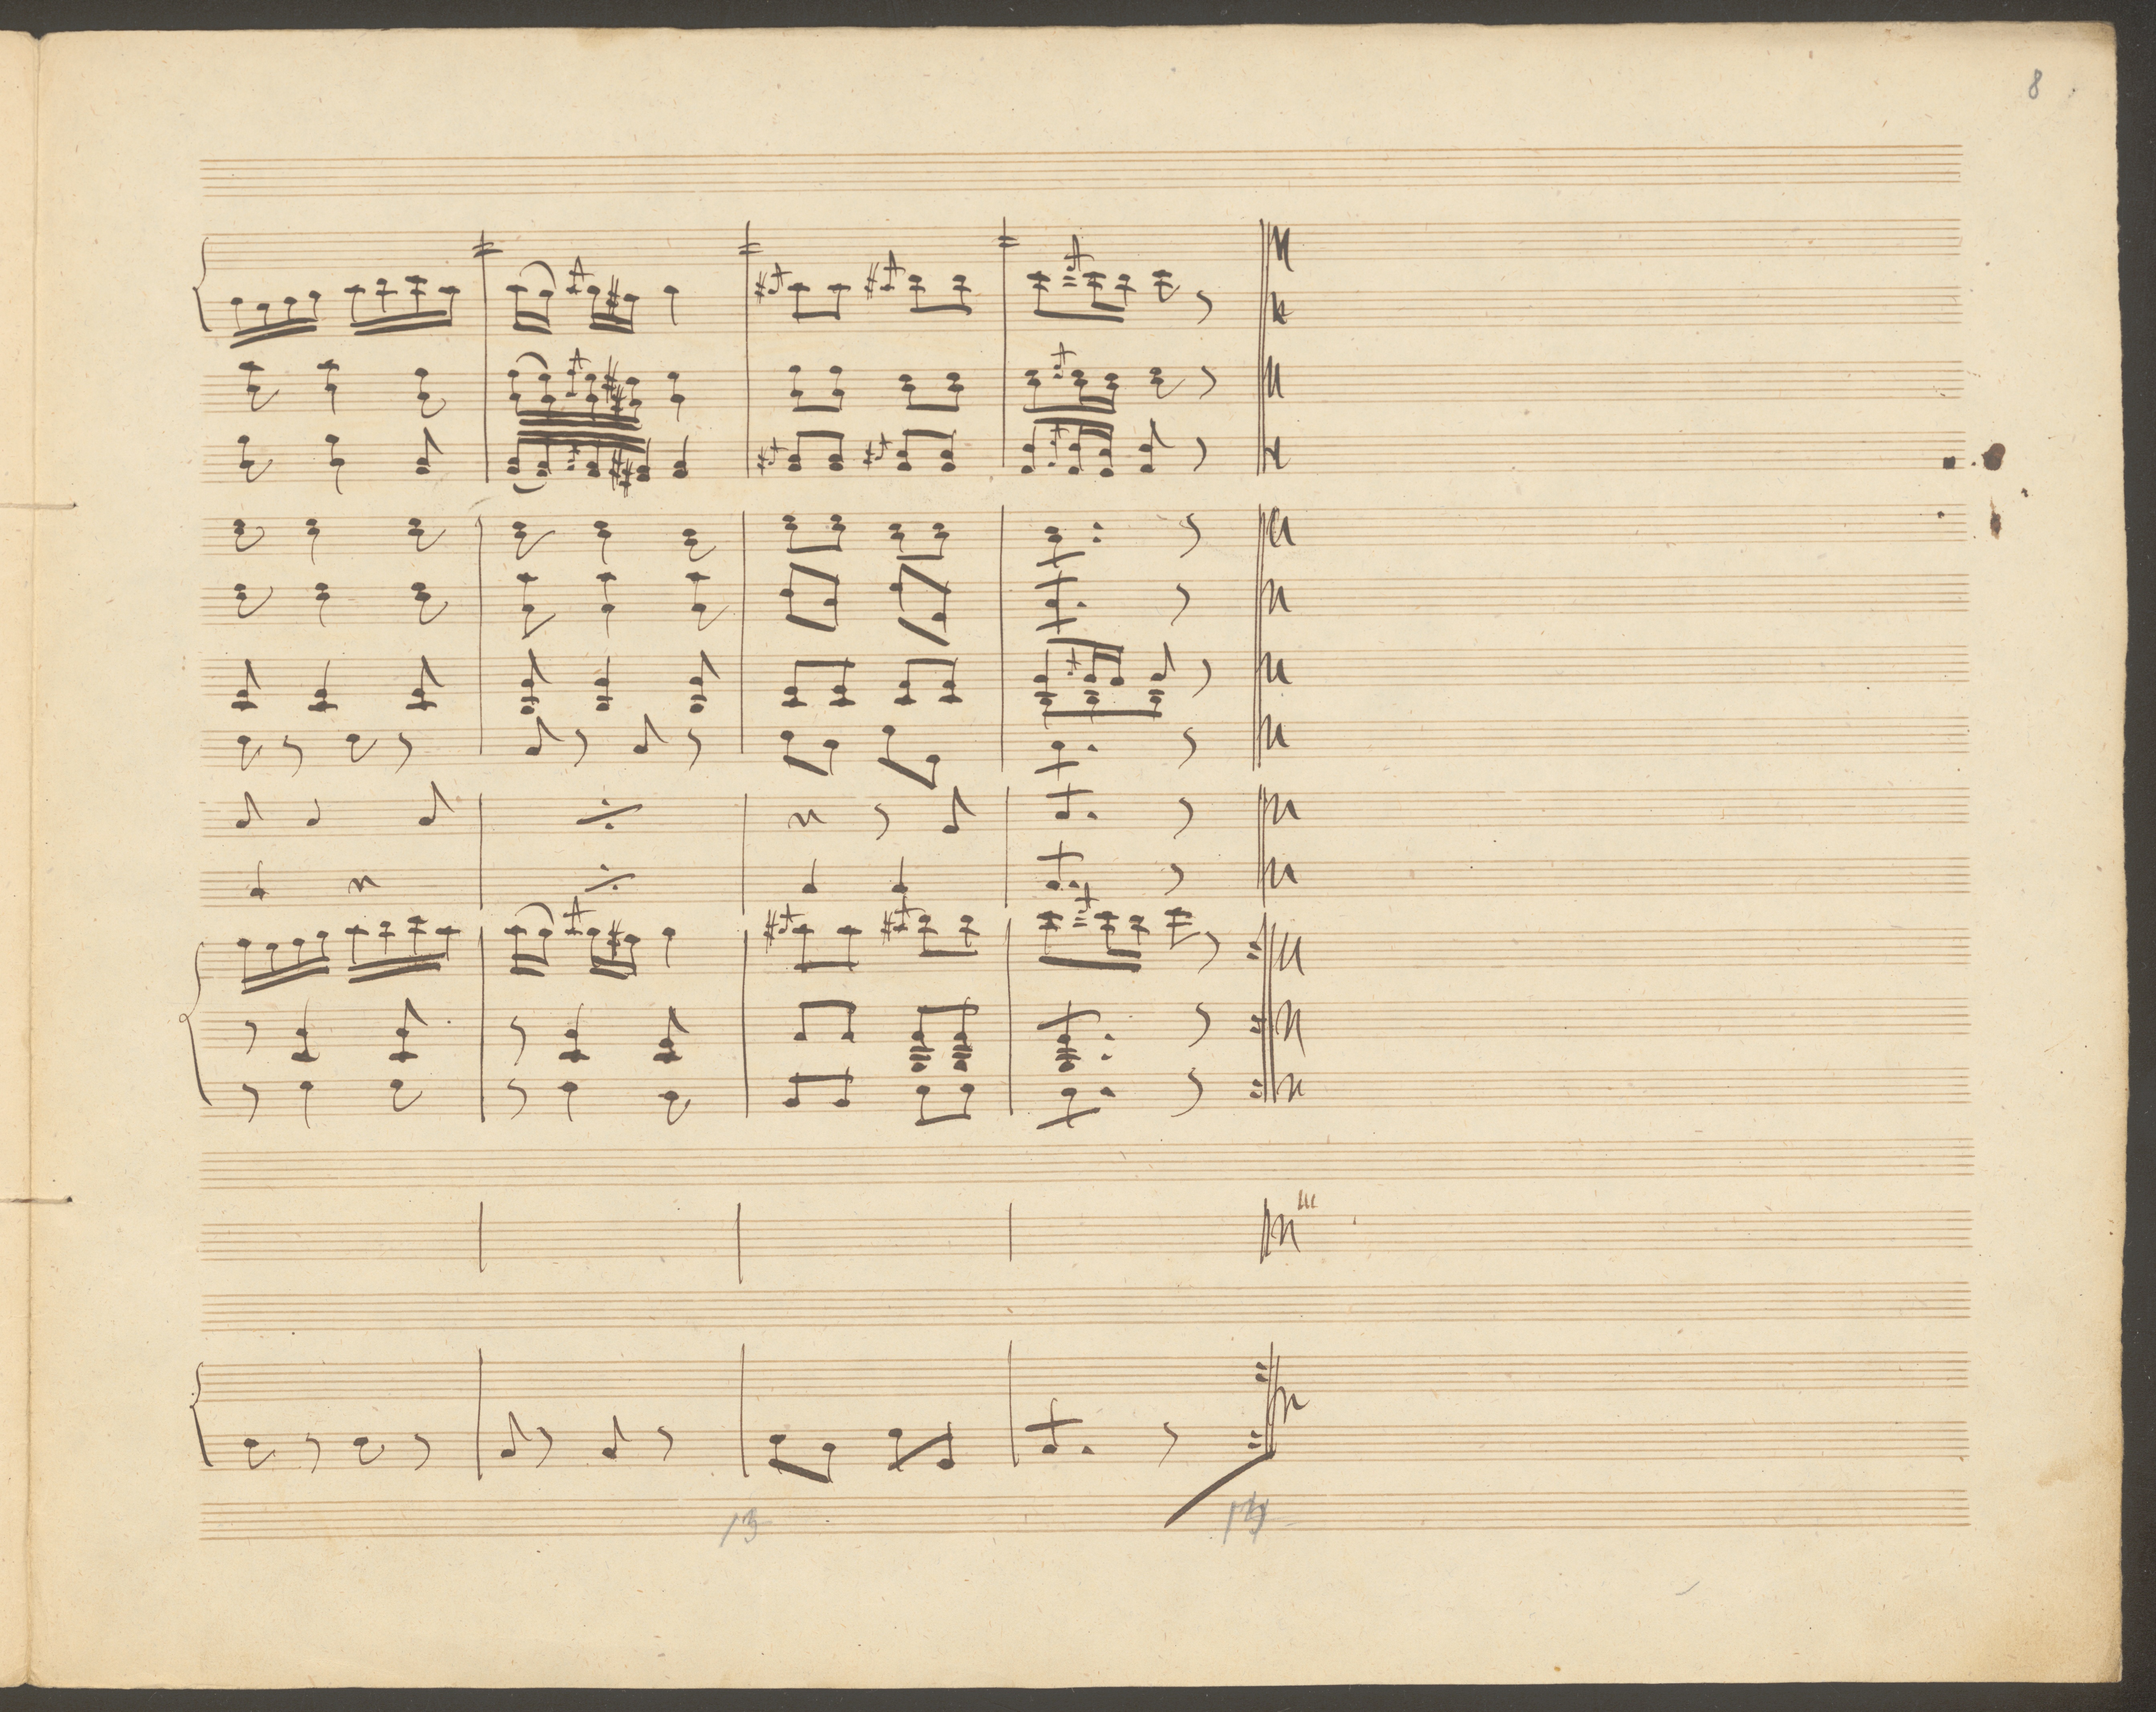 8
13
14